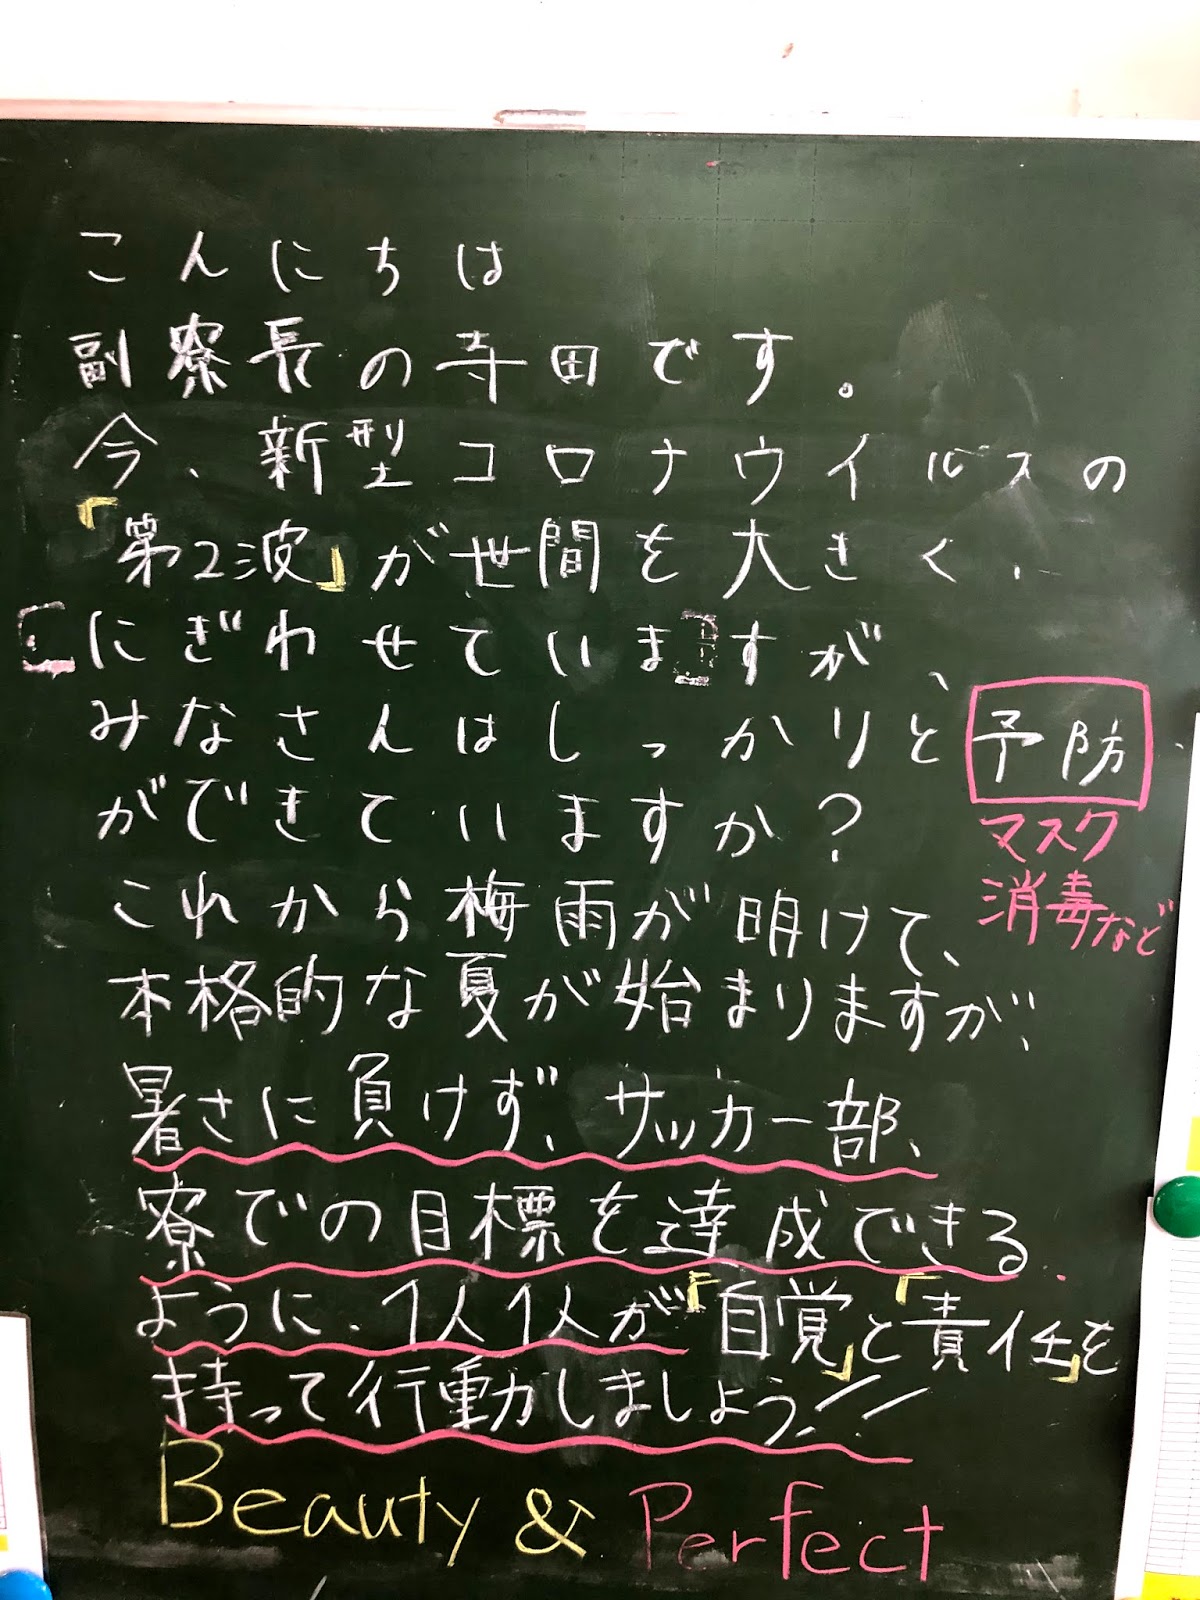 こんにちは
副寮長の寺田です。
今、新型コロナウイルスの
「第2波」が世間を大きく、
にぎわせていますが、
みなさんはしっかりと予防
ができていますか?
マスク
消毒など
これから梅雨が明けて、
本格的な夏が始まりますが、
暑さに負けず、サッカー部、
寮での目標を達成できる
ように、1人1人が「自覚」と「責任」を
持って行動しましょう!!
Beauty & Perfect